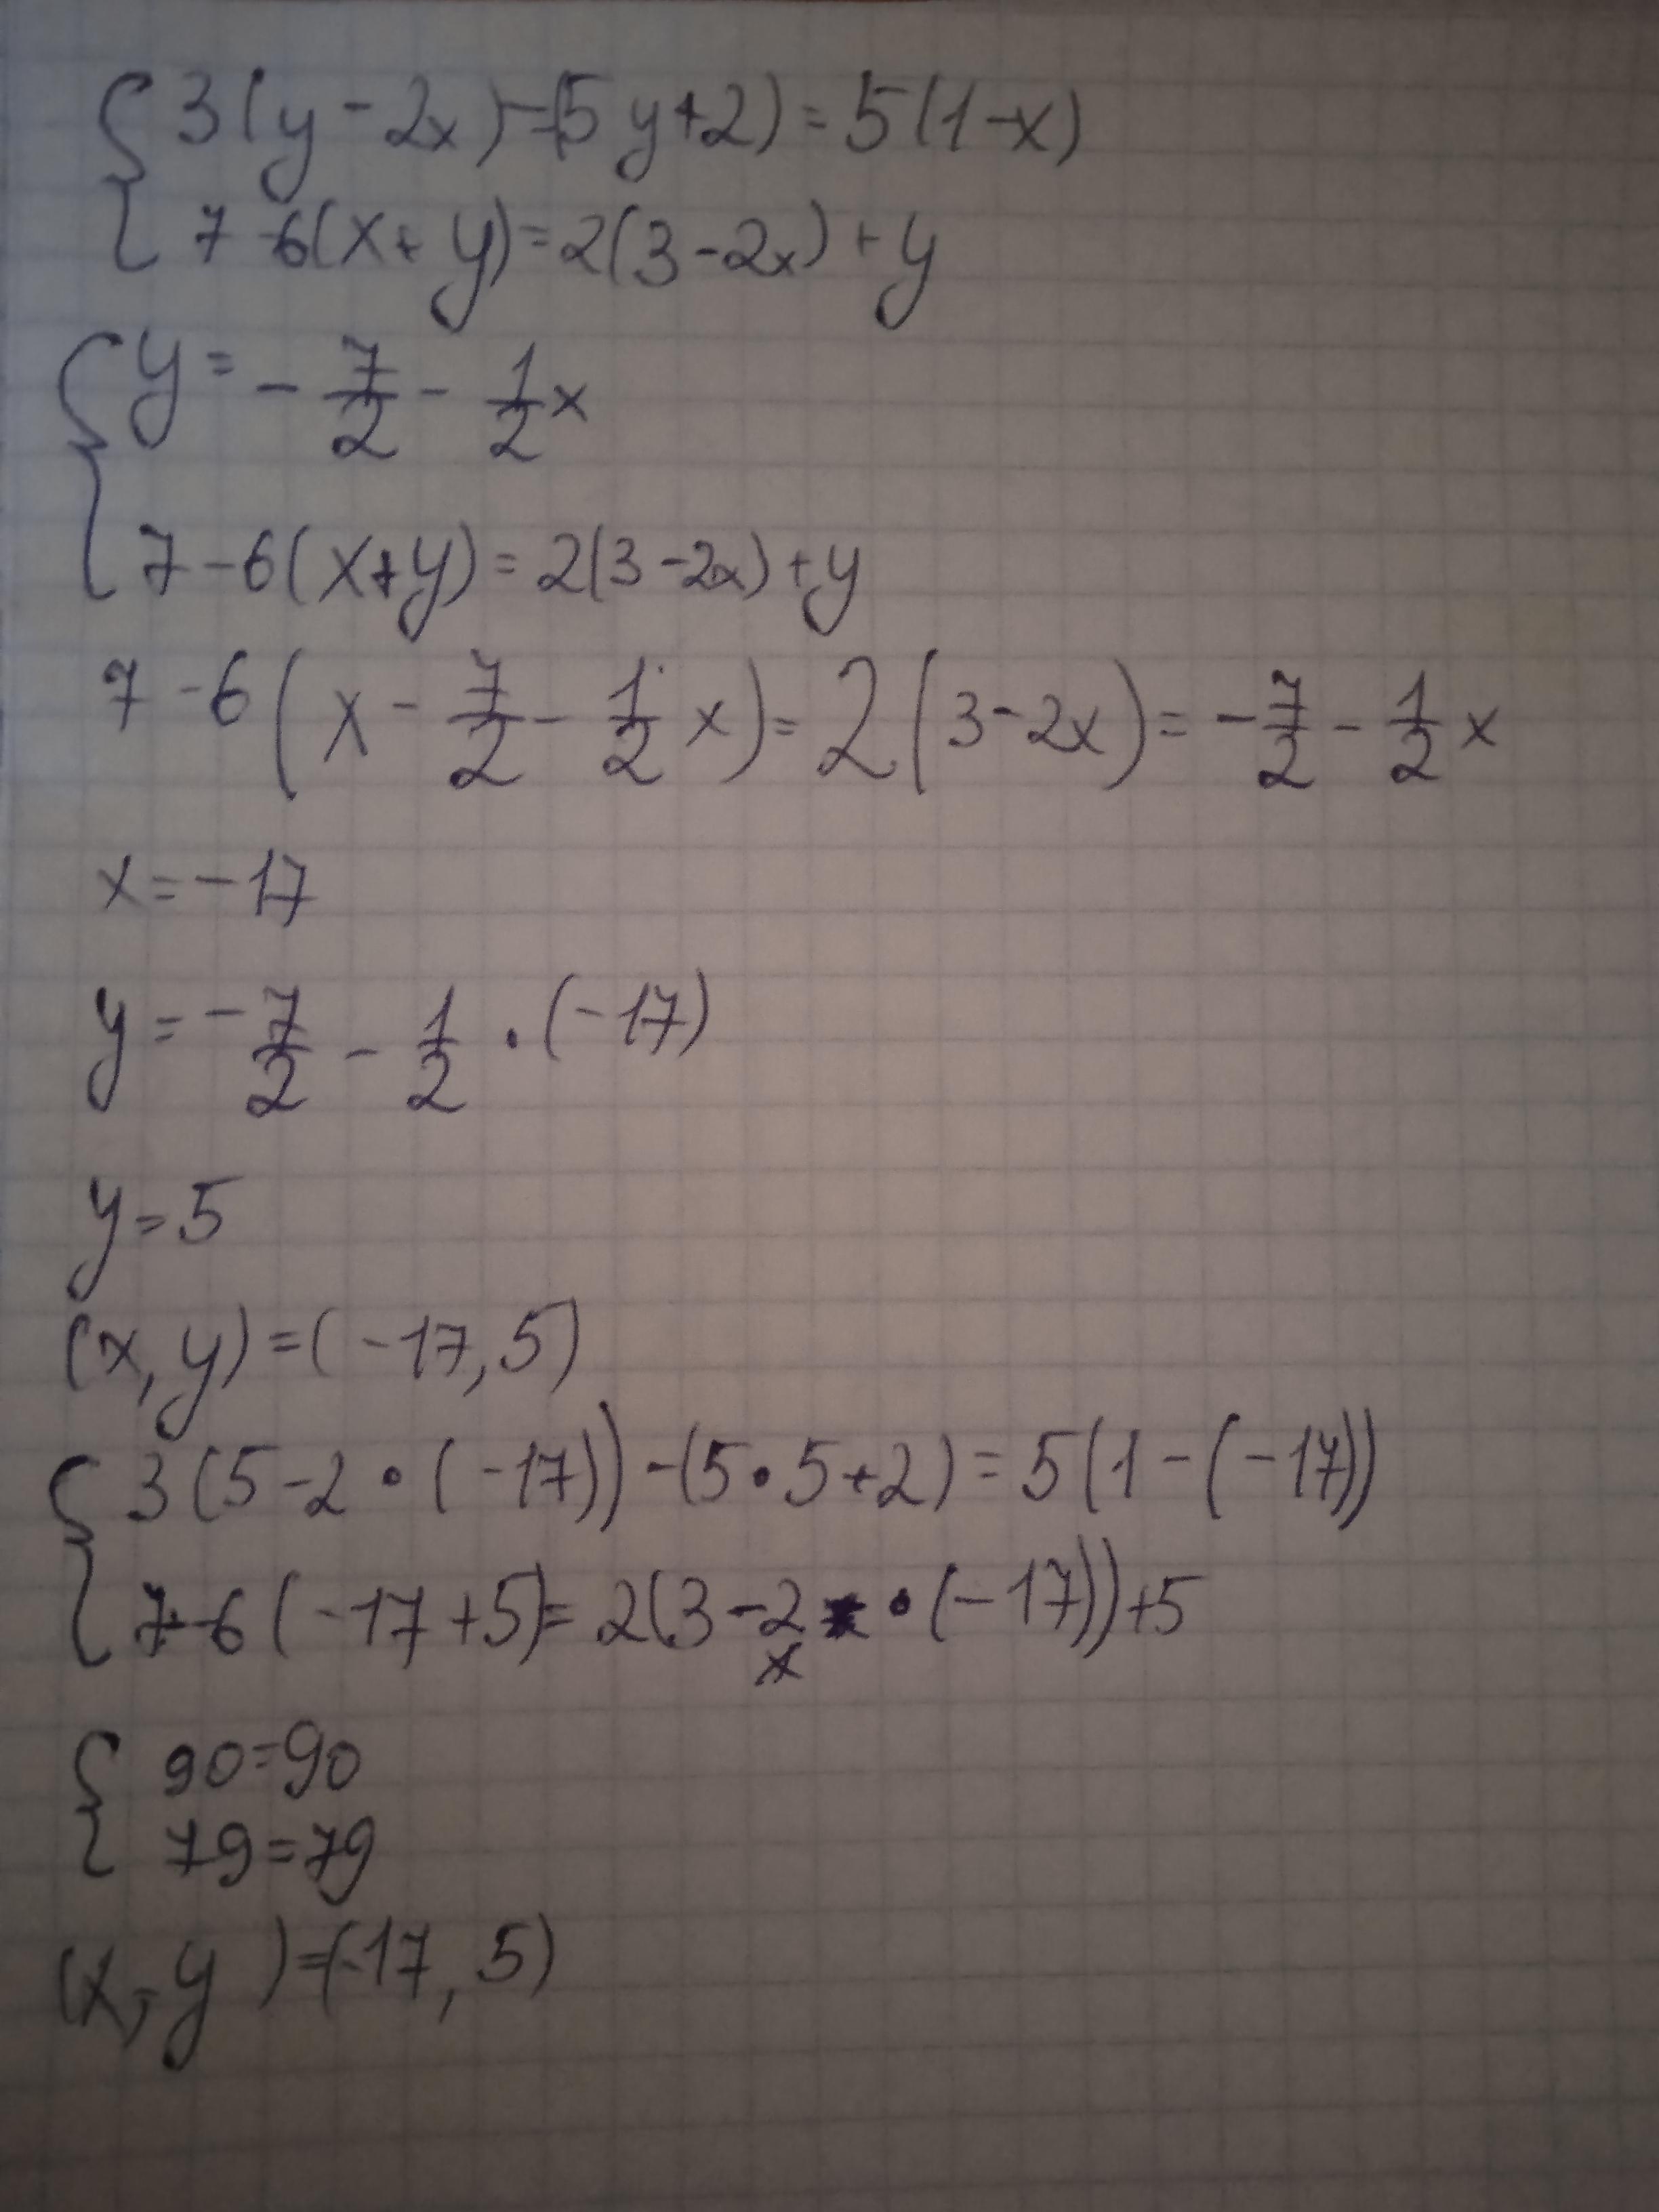 { 3(y-2x)-(5y+2)=5(1-x)
7-6(x+y)=2(3-2x)+y
{ y=-7/2-1/2x
7-6(x+y)=2(3-2x)+y
7-6(x-7/2-1/2x)=2(3-2x)=-7/2-1/2x
x=-17
y=-7/2-1/2·(-17)
y=5
(x,y)=(-17,5)
{ 3(5-2·(-17))-(5·5+2)=5(1-(-17))
7-6(-17+5)=2(3-2·(-17))+5
x
{ 90=90
79=79
(x,y)=(-17,5)